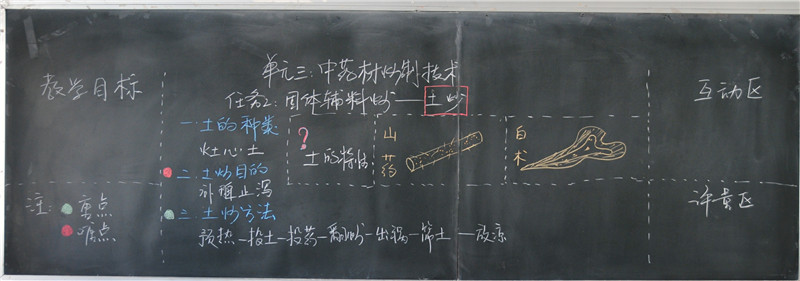 教学目标
单元三:中药材炒制技术
任务2:固体辅料炒——土炒
互动区
一.土的种类
灶心土
二.土炒目的
补脾止泻
三.土炒方法
预热—投土—投药—翻炒—出锅—筛土—放凉
?
土的特性
山药
白术
注:重点
难点
评价区